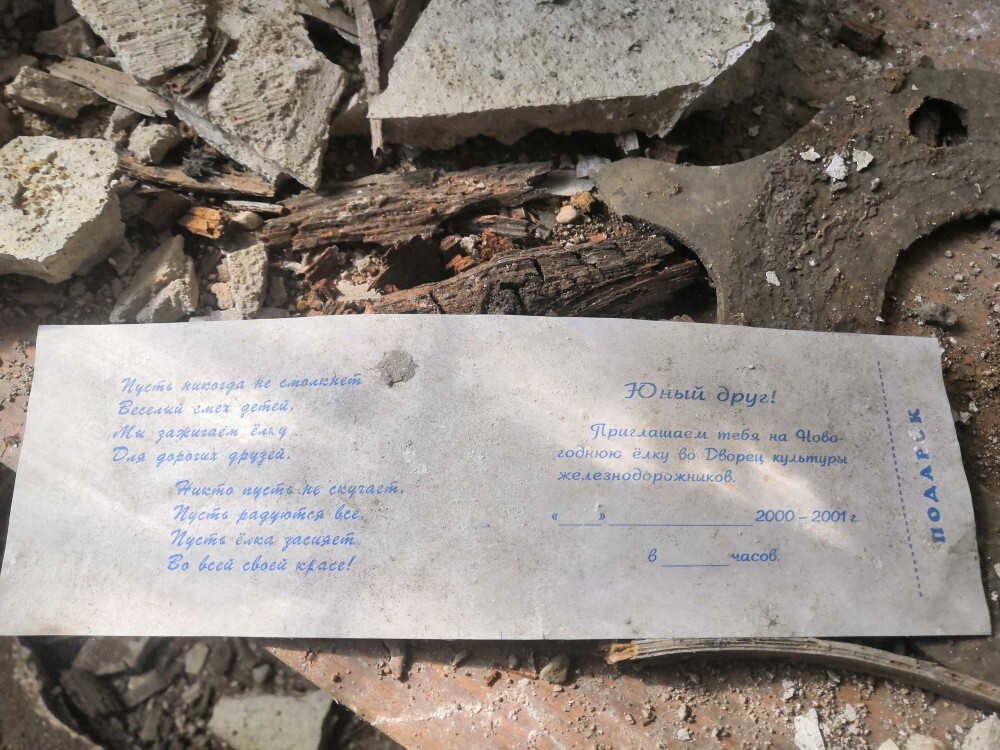 Пусть никогда не смолкнет
Веселый смех детей,
Мы зажигаем ёлку
Для дорогих друзей.
Никто пусть не скучает,
Пусть радуются все,
Пусть ёлка засияет
Во всей своей красе!
Юный друг!
Приглашаем тебя на Ново-
годнюю ёлку во Дворец культуры
железнодорожников.
«____»________________ 2000 – 2001 г.
в ________ часов.
ПОДАРОК